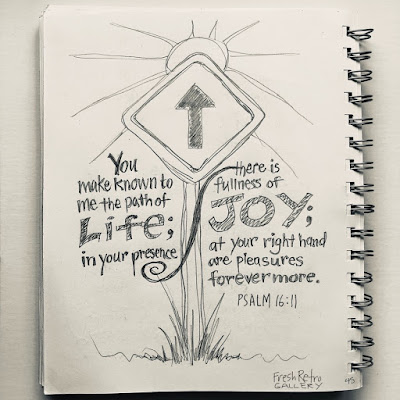 You
make known to
me the path of
Life;
in your presence
there is
fullness of
JOY;
at your right hand
are pleasures
forevermore.
PSALM 16:11
Fresh Retro
GALLERY